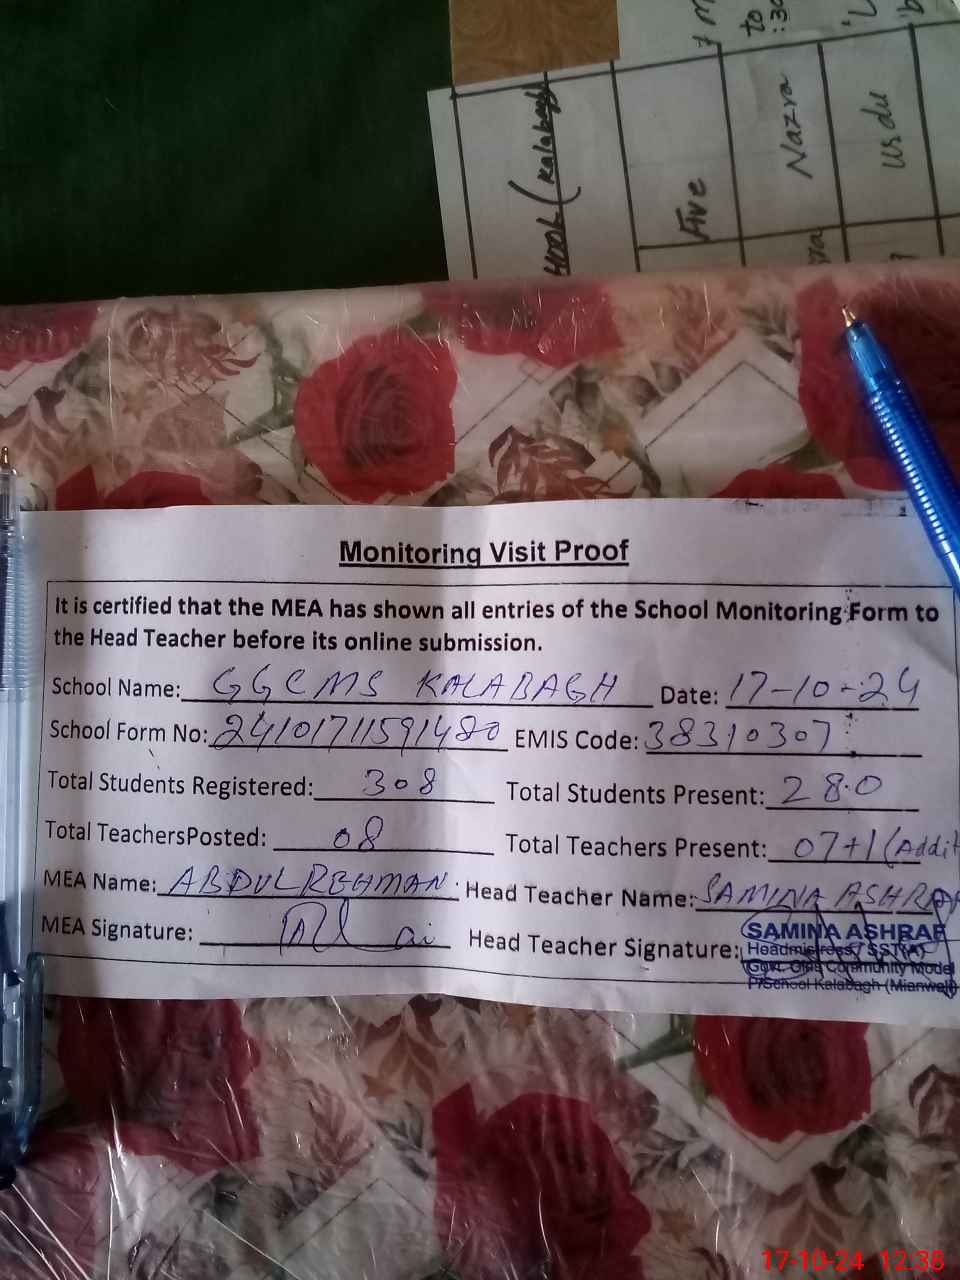 Five
Nazra
Urdu
Monitoring Visit Proof
It is certified that the MEA has shown all entries of the School Monitoring Form to
the Head Teacher before its online submission.
School Name: GGCMS KALABAGH Date: 17-10-24
School Form No: 24101711591480 EMIS Code: 38310307
Total Students Registered: 308 Total Students Present: 280
Total TeachersPosted: 08 Total Teachers Present: 07+1 (Addit
MEA Name: ABDUL REHMAN Head Teacher Name: SAMINA ASHRAF
MEA Signature: Head Teacher Signature:
SAMINA ASHRAF
Headmistress / SST(A)
Govt. Girls Community Model
P/School Kalabagh (Mianwali)
17-10-24 12:38